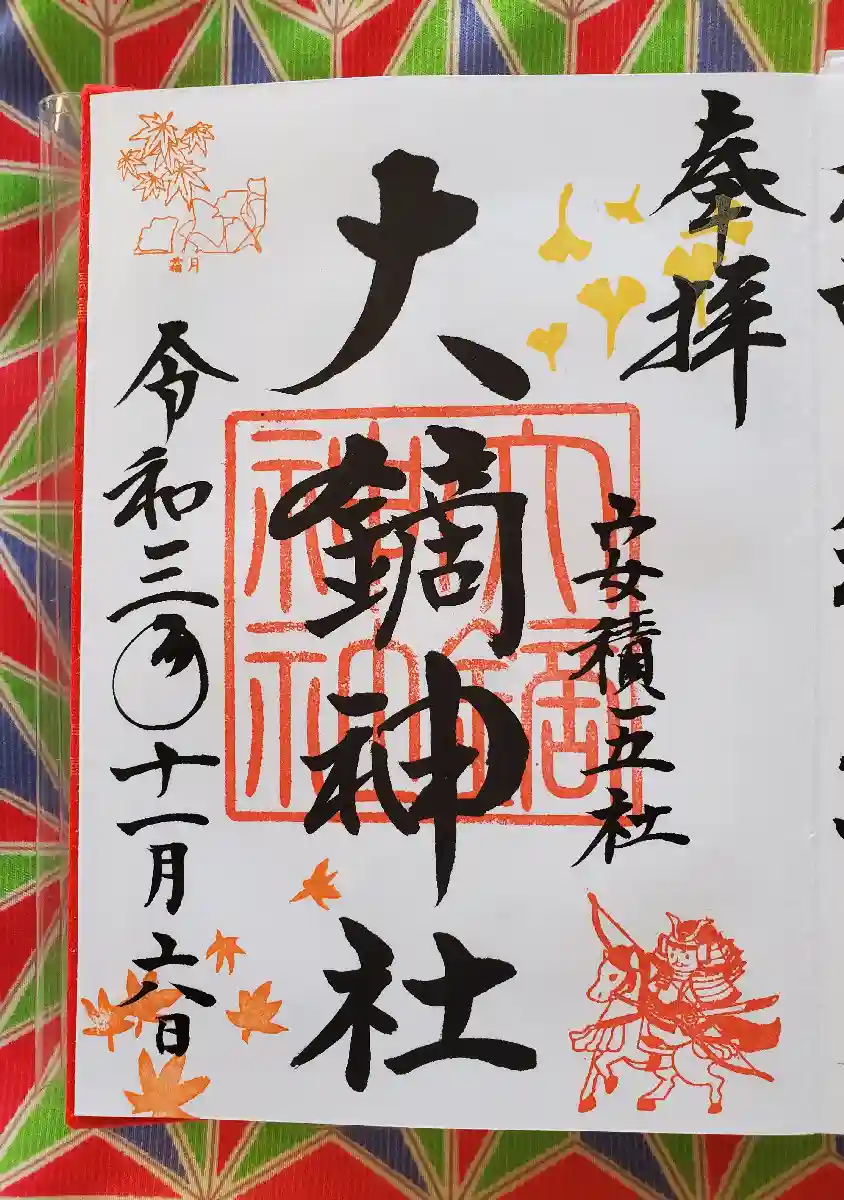 奉拝
安積五社
大鏑神社
令和三年十一月十六日
霜月